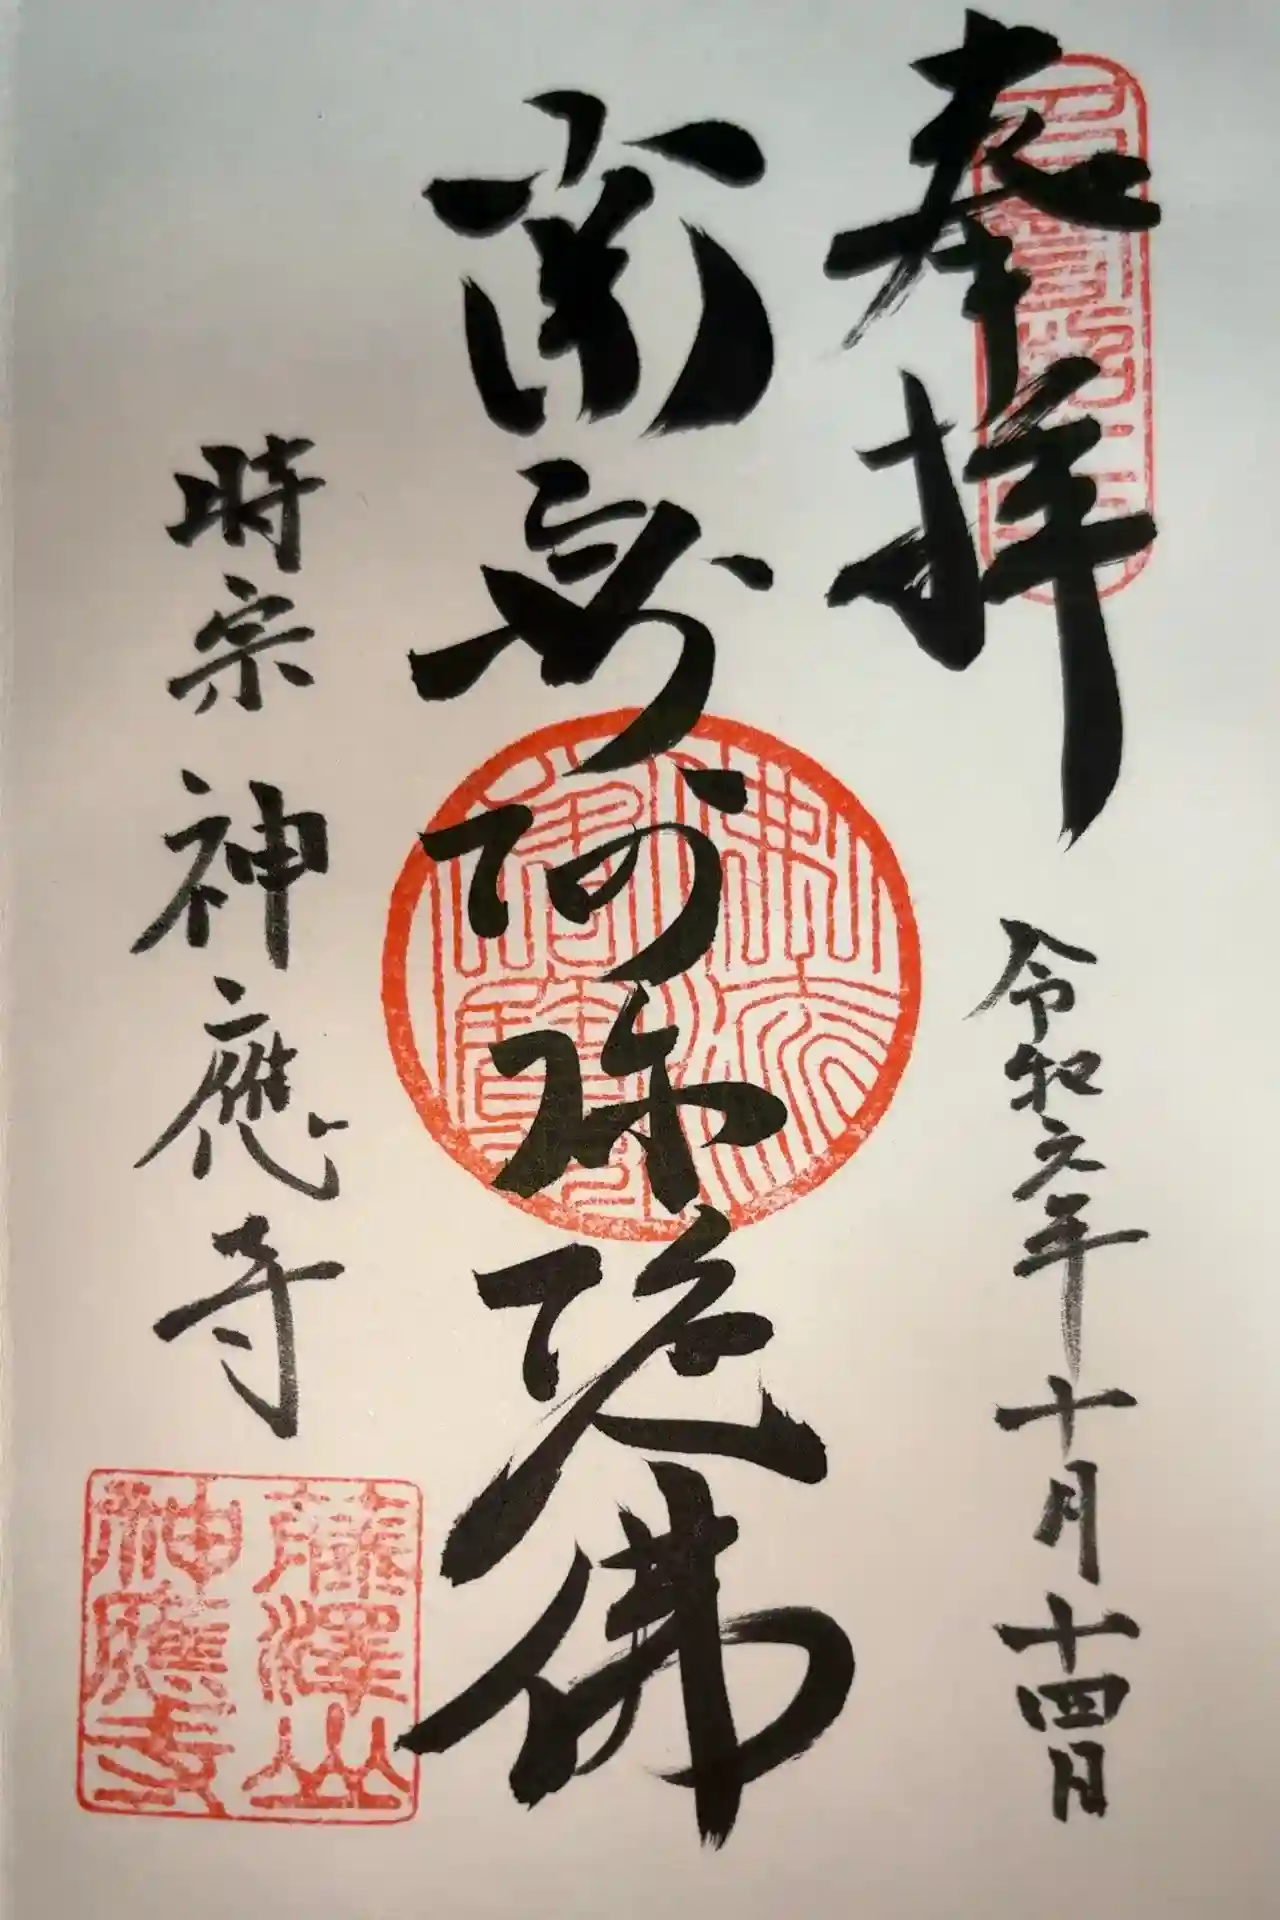 奉拝
令和元年十月十四日
南無阿弥陀佛
時宗 神應寺
藤澤山
神應寺